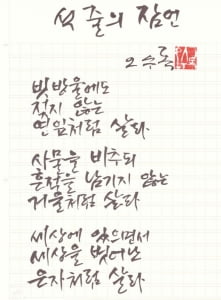 석 줄의 잠언
오수록
빗방울에도
젖지 않는
연잎처럼 살라
사물을 비추되
흔적을 남기지 않는
거울처럼 살라
세상에 있으면서
세상을 벗어난
은자처럼 살라